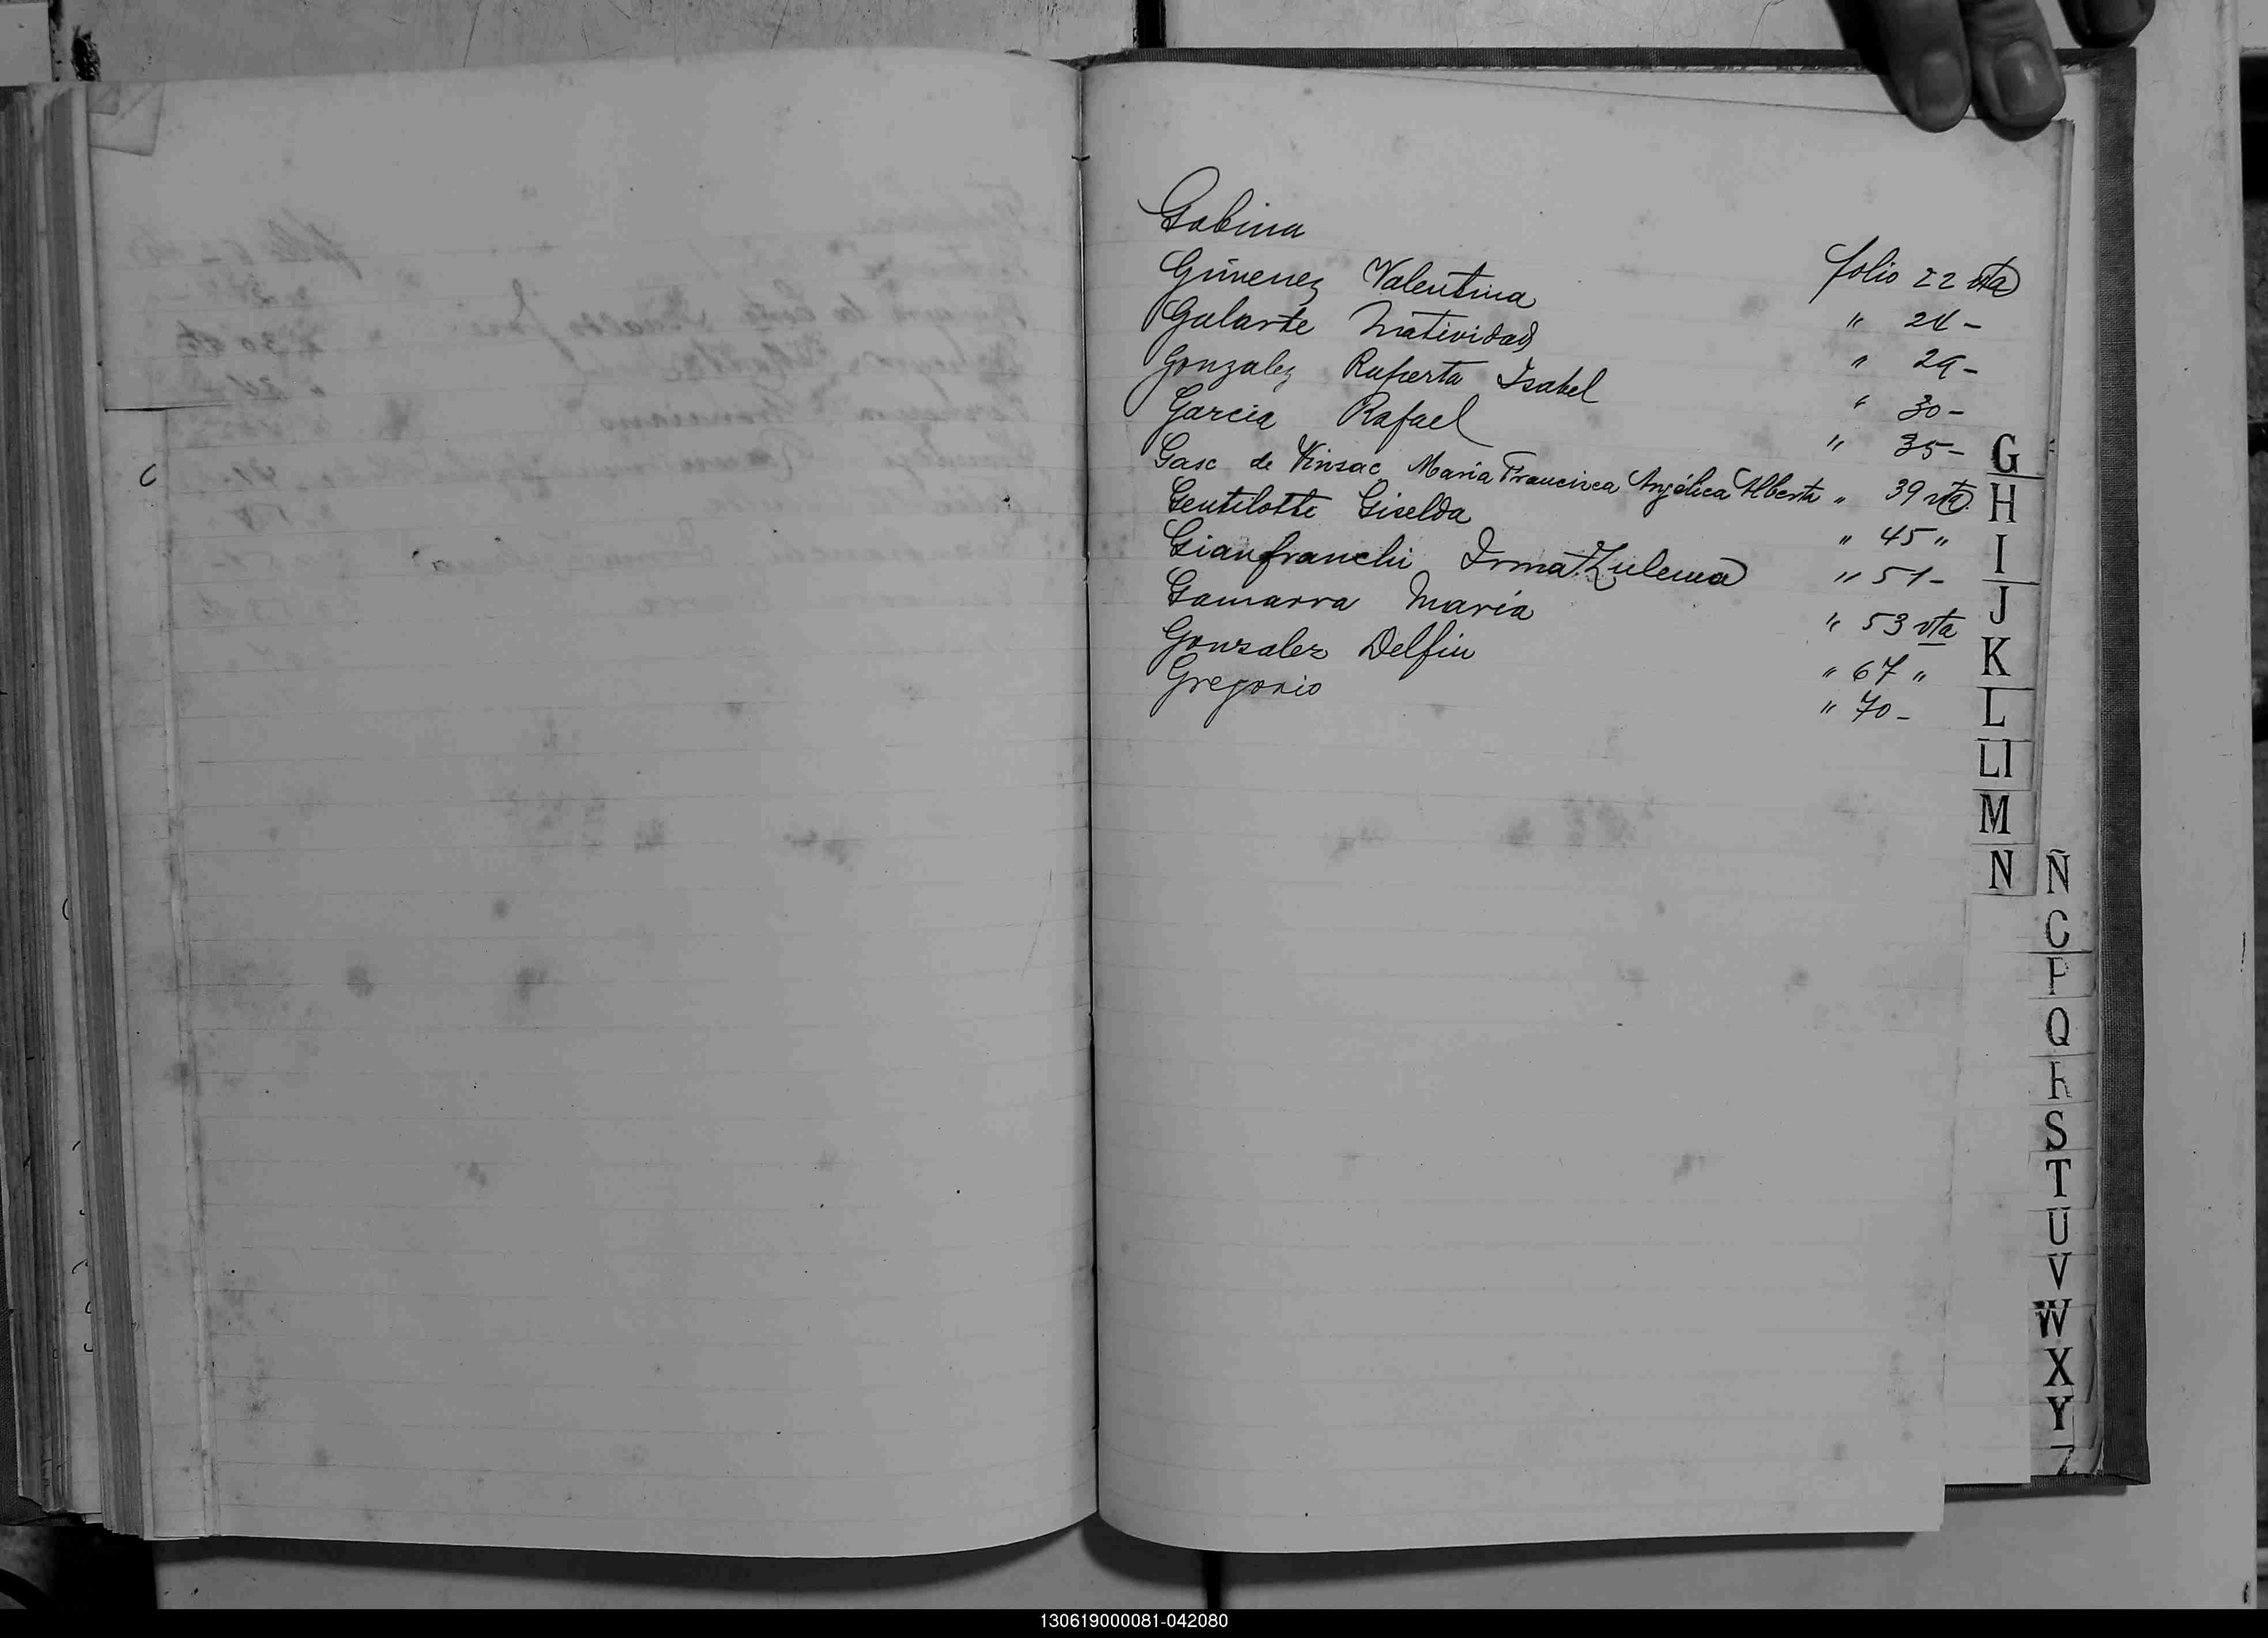 Gabina folio 22 vta
Gimenez Valentina " 24 -
Galarte Natividad " 29 -
Gonzalez Ruperta Isabel " 30 -
Garcia Rafael " 35 -
Gasc de Vinsac Maria Francisca Angélica Alberta " 39 vta
Gentilotti Giselda " 45 "
Gianfranchi Irma Zulema " 51 -
Gamarra Maria " 53 vta
Gonzalez Delfin " 67 "
Gregorio " 70 -
G
H
I
J
K
L
Ll
M
N
Ñ
O
P
Q
R
S
T
U
V
W
X
Y
Z
130619000081-042080